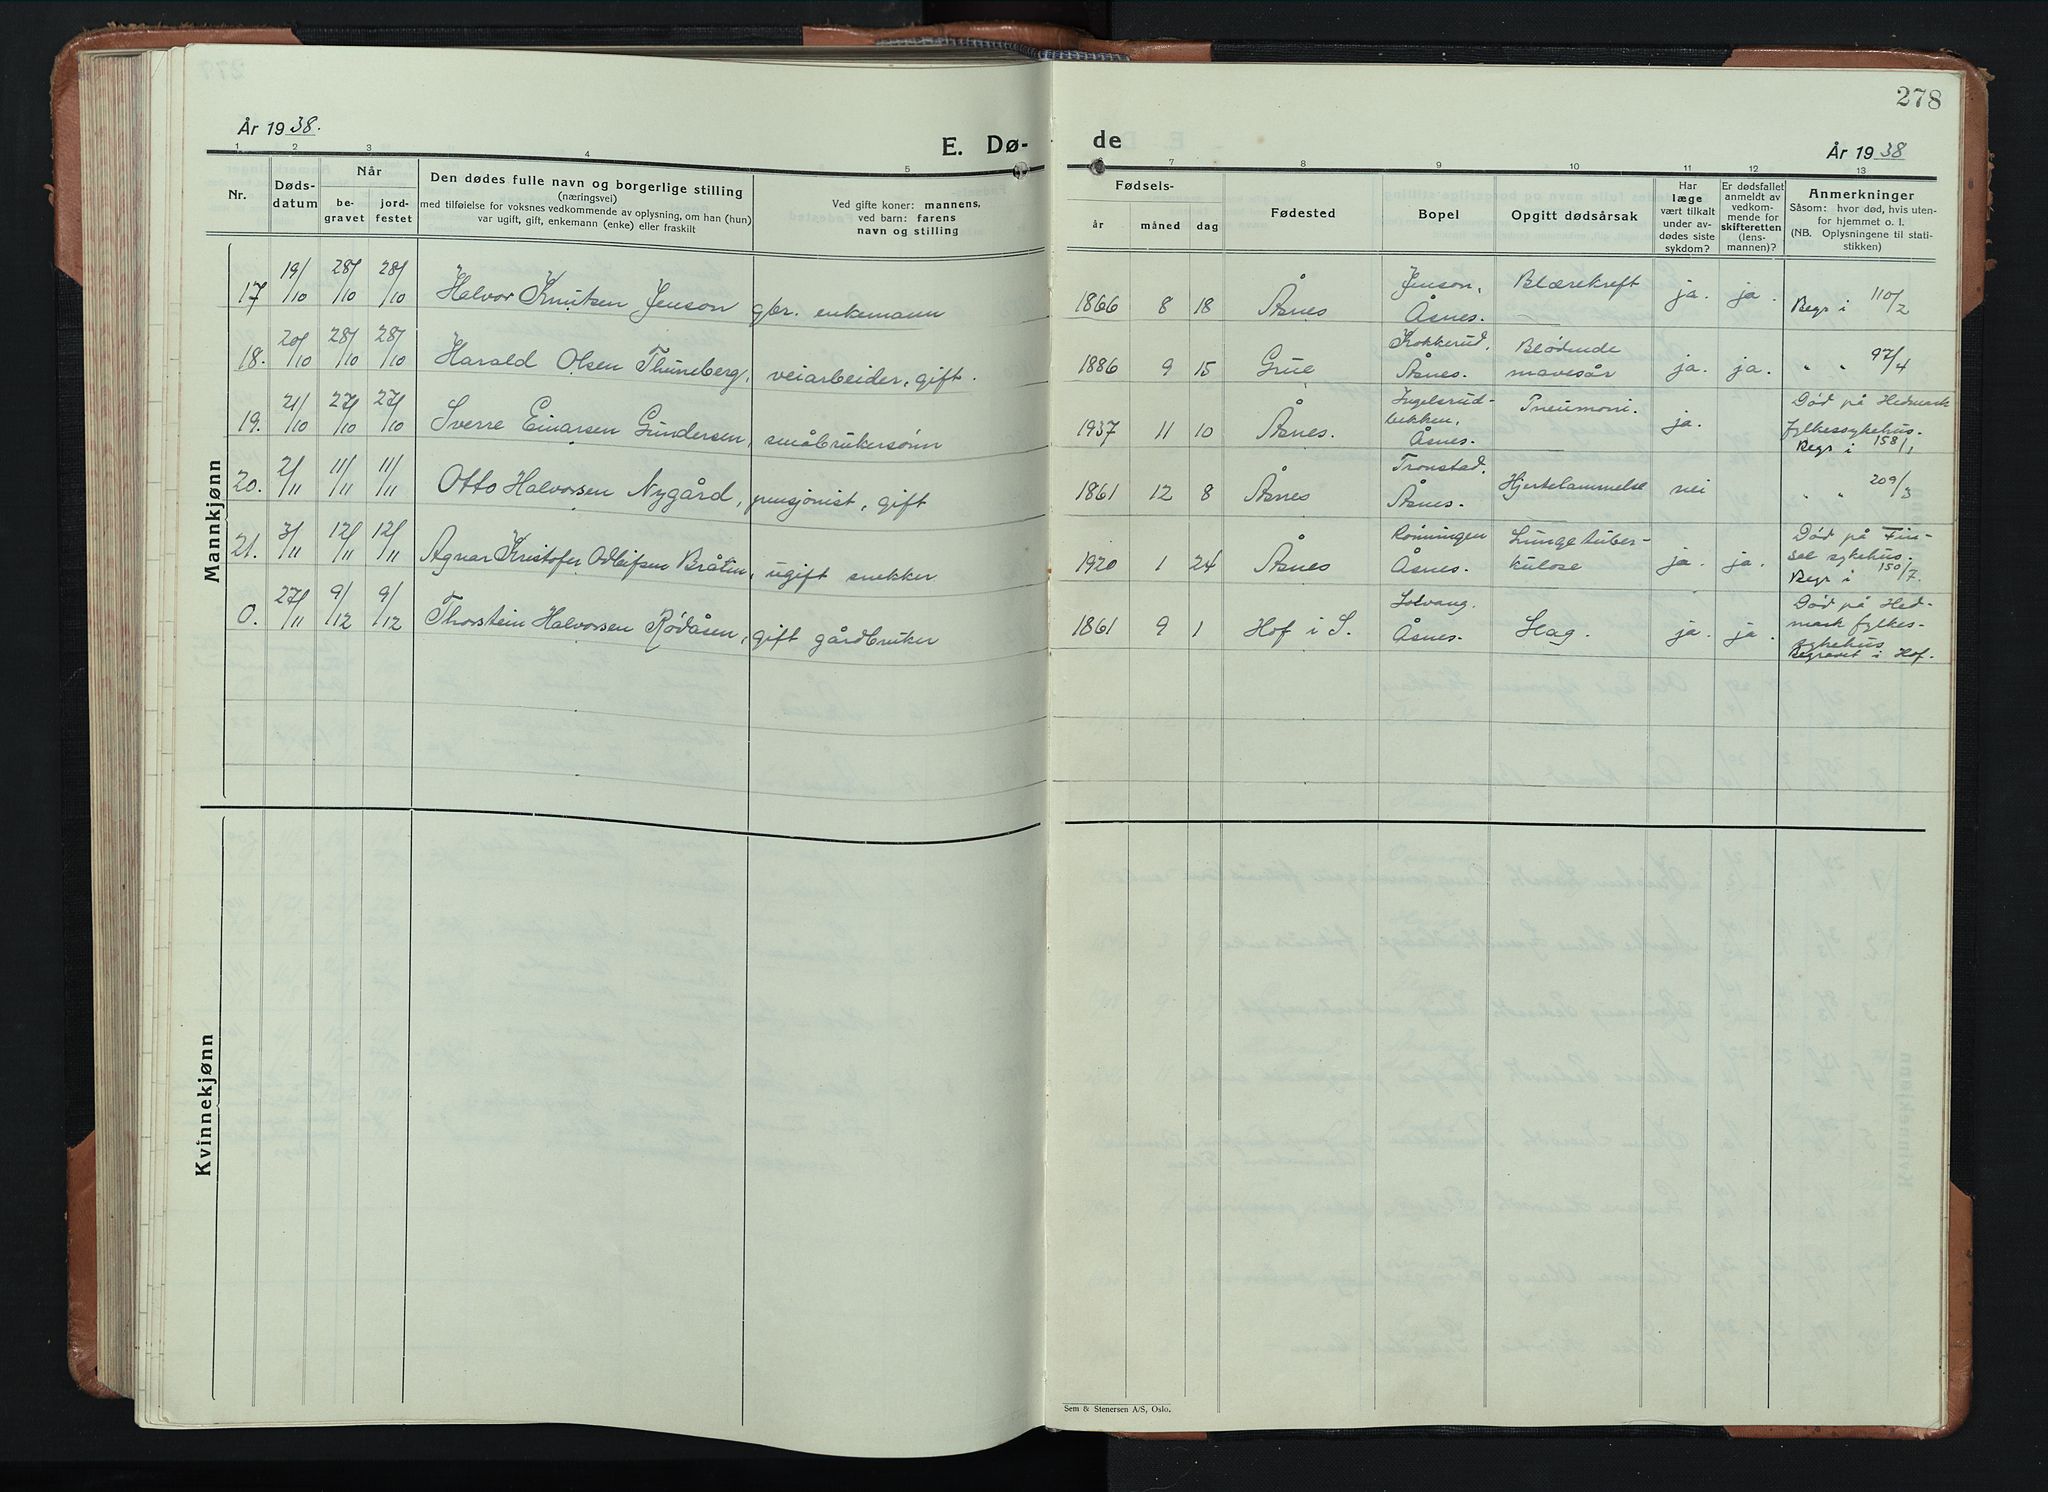 278
År 1938.
E. Dø-
de
År 1938
1 2 3 4 5
6 7 8 9 10 11 12 13
Nr.
Døds-
datum
Når
be-
gravet
jord-
festet
Den dødes fulle navn og borgerlige stilling
(næringsvei)
med tilføielse for voksnes vedkommende av oplysning, om han (hun)
var ugift, gift, enkemann (enke) eller fraskilt
Ved gifte koner: mannens,
ved barn: farens
navn og stilling
Fødsels-
år måned dag
Fødested
Bopel
Opgitt dødsårsak
Har
læge
vært tilkalt
under av-
dødes siste
sykdom?
Er dødsfallet
anmeldt av
vedkom-
mende for
skifteretten
(lens-
mannen)?
Anmerkninger
Såsom: hvor død, hvis uten-
for hjemmet o. l.
(NB. Oplysningene til stati-
stikken)
Mannkjønn
17 19/10 28/10 28/10 Halvor Knutsen Jenson gbr. enkemann 1866 8 18 Åsnes Jenson, Åsnes. Blærekreft ja. ja. Begr i 110/2
18. 20/10 28/10 28/10 Harald Olsen Thuneberg, veiarbeider, gift. 1886 9 15 Grue Kokkerud, Åsnes. Blødende mavesår ja. ja. " " 97/4
19. 21/10 27/10 27/10 Sverre Einarsen Gundersen, småbrukersønn 1937 11 10 Åsnes. Ingelsrud-bekken, Åsnes. Pneumoni. ja. Død på Hedmark fylkessykehus. Begr i 158/1
20. 2/11 11/11 11/11 Otto Halvorsen Nygård, pensjonist, gift 1861 12 8 Åsnes Tronstad. Åsnes. Hjertelammelse nei " " 209/3
21. 3/11 12/11 12/11 Agnar Kristofer Adleifsen Bråten, ugift snekker 1920 1 24 Åsnes Rønningen Åsnes. Lungetuber-kulose ja. ja. Død på Fin-sol sykehus. Begr i 150/7.
0. 27/11 9/12 9/12 Thorstein Halvorsen Rødåsen, gift gårdbruker 1861 9 1 Hof i S. Solvang. Åsnes. Slag. ja. ja. Død på Hed-mark fylkes-sykehus Begravet i Hof.
Kvinnekjønn
Sem & Stenersen A/S, Oslo.